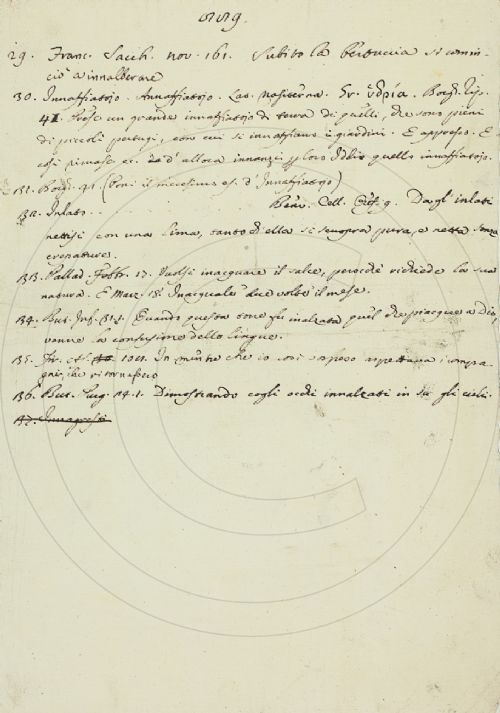 29. Franc. Sacch. nov. 161. Subito la bertuccia si comin-
ciò a innalberare
30. Innaffiatojo. Annaffiatojo. Lat. nasiterna. Gr. ὑδρία. Borgh. Tip.
41. Prese un grande innaffiatojo di terra di quelli, che sono pieni
di piccoli pertugi, con cui si innaffiano i giardini. E appresso. E
così rimase ec. e d'allora innanzi loro quello innaffiatojo.
131. 41. (Poni il medesimo es. d'Innaffiatojo)
132. Inlato. Benv. Cell. Oref. 9. Dagl'inlati
nettisi con una lima, tanto ch'ella si scuopra pura, e netta senza
crenature.
133. Pallad. Febbr. 17. Vuolsi inacquare il salce, perocchè richiede la sua
natura. E Marz. 18. Inacqualo due volte il mese.
134. But. Inf. 31.1. Quando questa torre fu inalzata quel che piacque a Dio,
venne la confusione delle lingue.
135. In mentre che io così sospeso aspettava i compa-
gni, che ritornassero
136. But. Purg. 14.1. Dimostrando cogli occhi innalzati in su gli cieli.